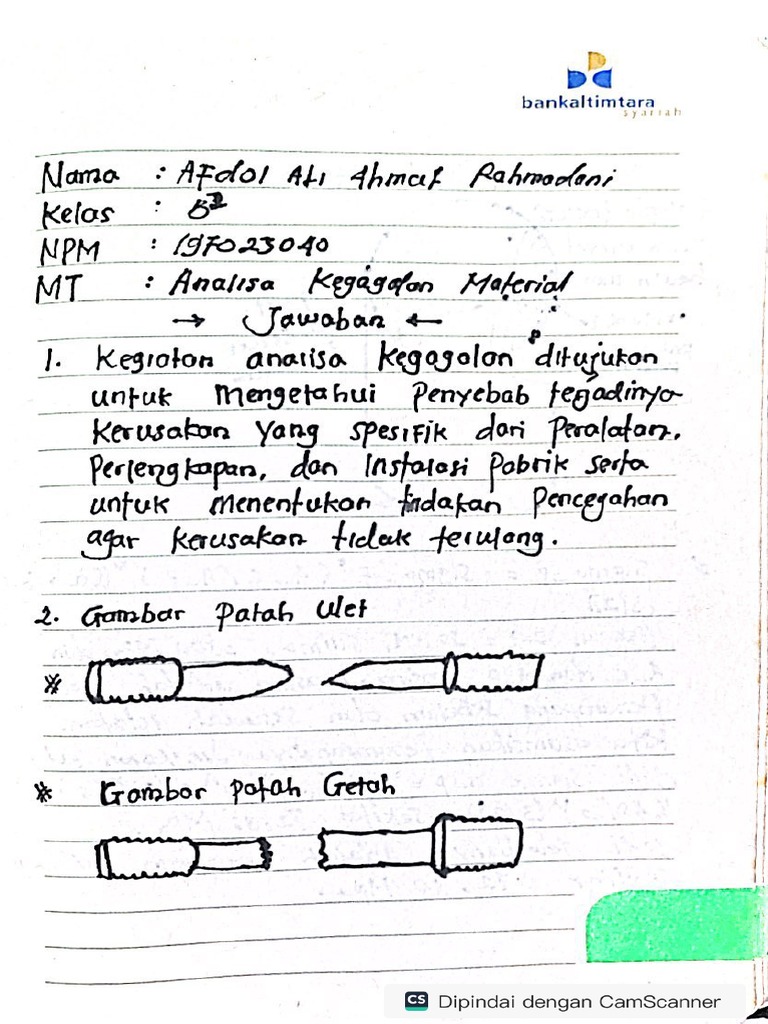 bankaltimtara
syariah
Nama : Afdol Ali Ahmat Rahmadani
Kelas :
NPM : 197023040
MT : Analisa Kegagalan Material
→ Jawaban ←
1. Kegiatan analisa kegagalan ditujukan
untuk mengetahui Penyebab terjadinya
Kerusakan yang spesifik dari Peralatan,
Perlengkapan, dan instalasi Pabrik serta
untuk menentukan tindakan Pencegahan
agar kerusakan tidak terulang.
2. Gambar Patah Ulet
* Gambar patah Getah
CS Dipindai dengan CamScanner